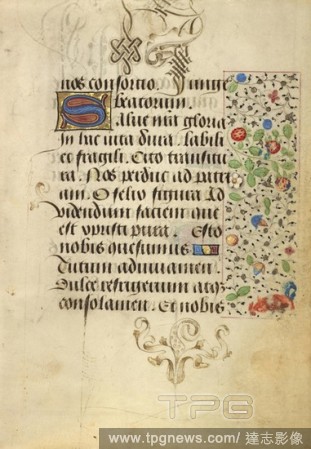 nos consorcio. Iunge
beatorum.
Salue nr̃a gloria
In hac vita dura. labili
et fragili. Cito transitu
ra. Nos perduc ad patri
am. O felix figura Ad
videndum faciem que
est xp̃isti pura. Esto
nobis quesumus
Tutum adiuuamen.
Dulce refrigerium atq̃
consolamen. Et nobis
TPG
www.tpgnews.com/ 達志影像